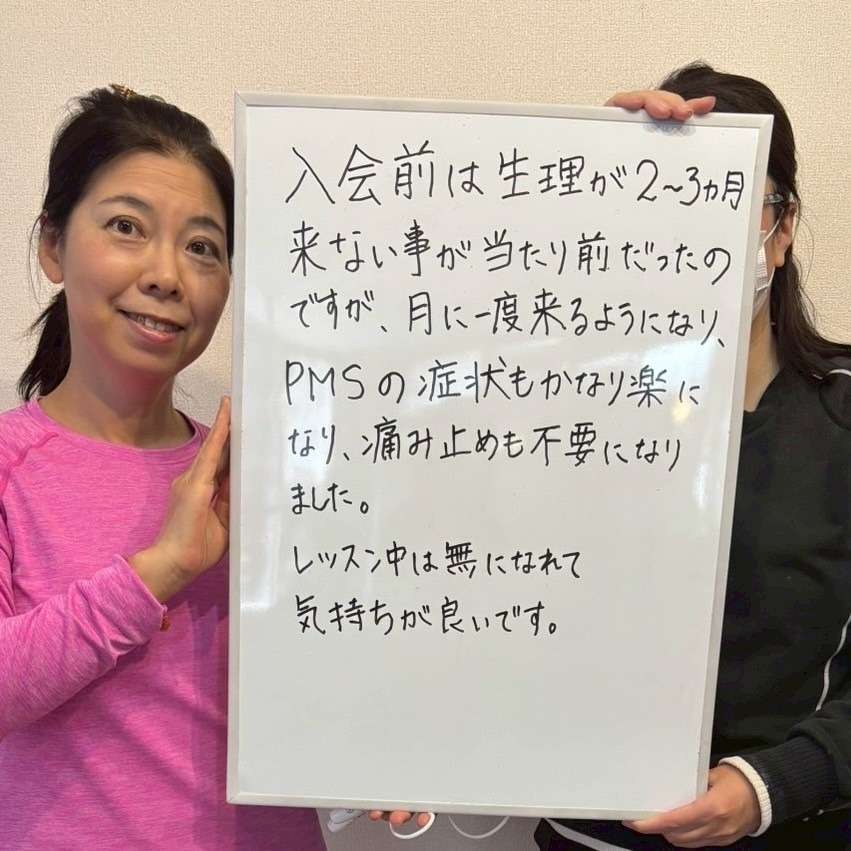 入会前は生理が2〜3ヵ月
来ない事が当たり前だったの
ですが、月に一度来るようになり、
PMSの症状もかなり楽に
なり、痛み止めも不要になり
ました。
レッスン中は無になれて
気持ちが良いです。